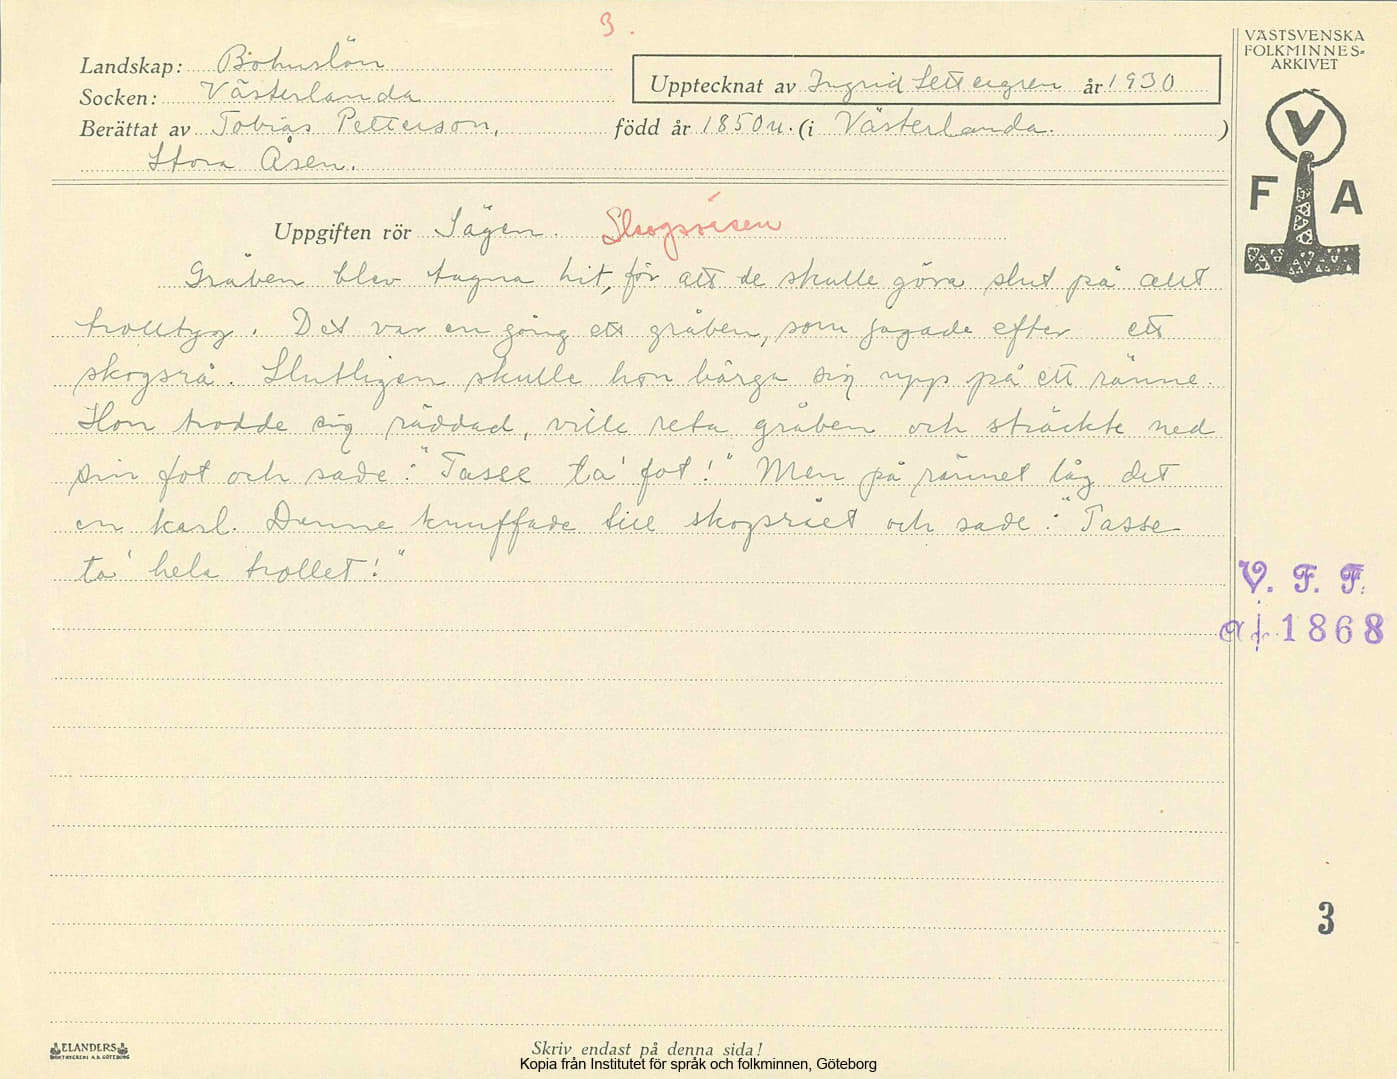 3.
VÄSTSVENSKA
FOLKMINNES-
ARKIVET
Landskap: Bohuslän
Socken: Västerlanda
Upptecknat av Ingrid Settergren år 1930
Berättat av Tobias Petterson, född år 1850 (i Västerlanda.)
Stora Åsen.
V
F A
Uppgiften rör Sägen. Skogsväsen
Gråben blev tagna hit, för att de skulle göra slut på allt
trolltyg. Det var en gång ett gråben, som jagade efter ett
skogsrå. Slutligen skulle hon bärga sig upp på ett ränne.
Hon trodde sig räddad, ville reta gråben och sträckte ned
sin fot och sade: "Tasse ta' fot!" Men på rännet låg det
en karl. Denne knuffade till skogsrået och sade: "Tasse
ta' hela trollet!"
V. F. F.
1868
3
ELANDERS
BOKTRYCKERI A.B. GÖTEBORG
Skriv endast på denna sida!
Kopia från Institutet för språk och folkminnen, Göteborg